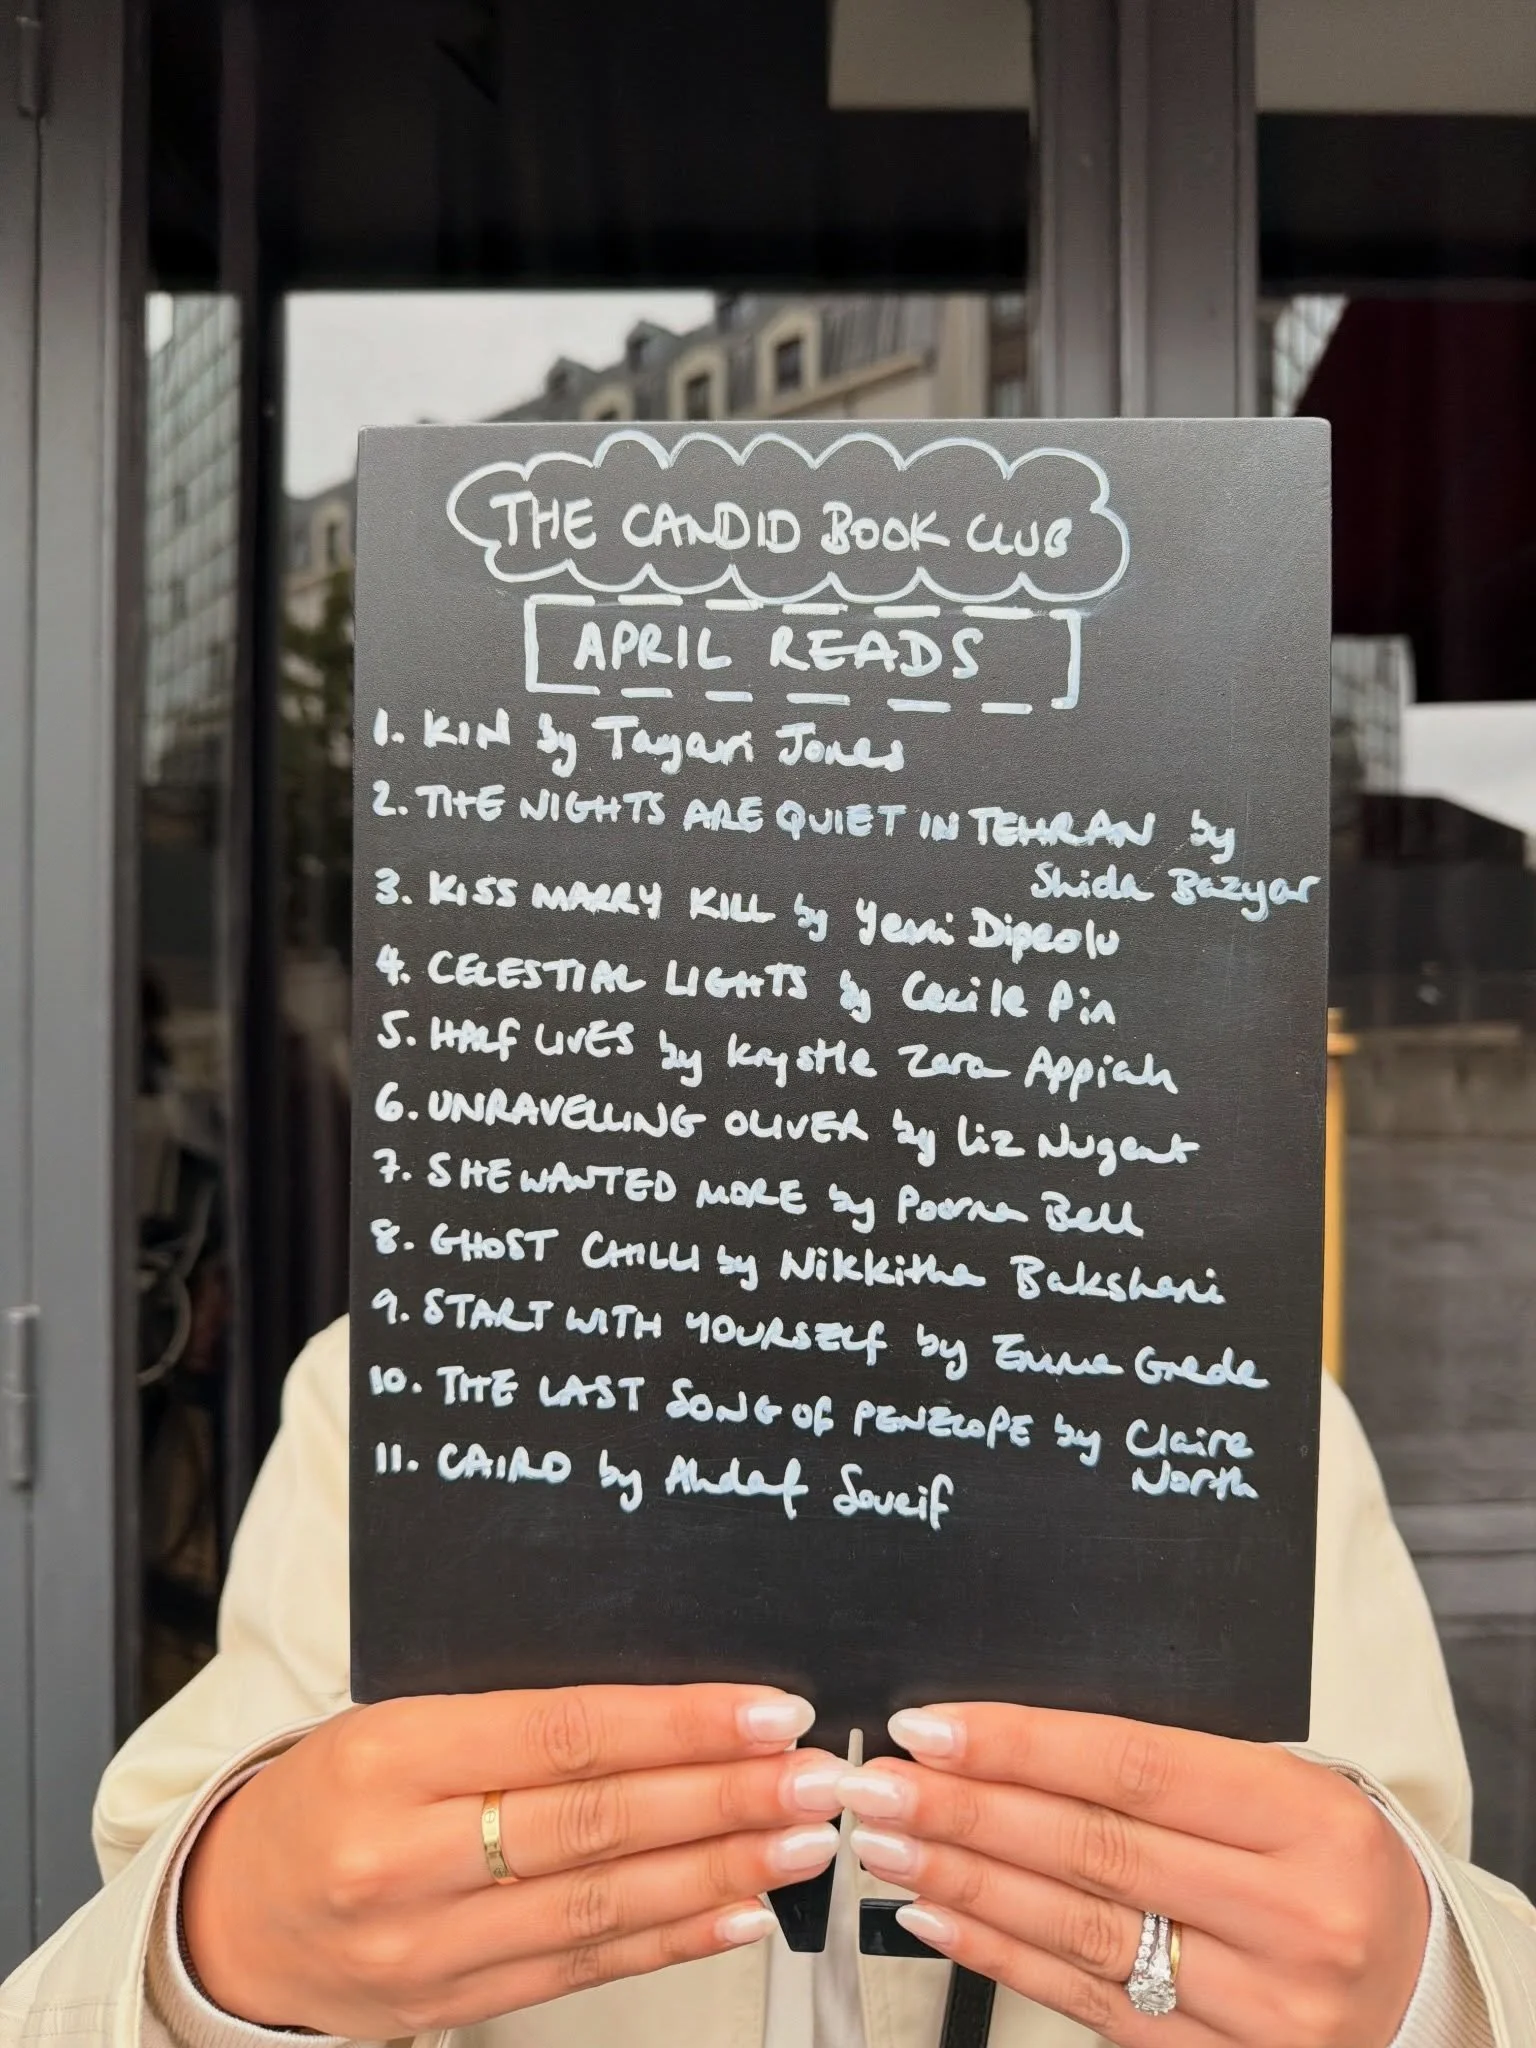 THE CANDID BOOK CLUB
APRIL READS
1. KIN by Tayari Jones
2. THE NIGHTS ARE QUIET IN TEHRAN by
Shida Bazyar
3. KISS MARRY KILL by Yemi Dipeolu
4. CELESTIAL LIGHTS by Cecile Pin
5. HALF LIVES by Krystle Zara Appiah
6. UNRAVELLING OLIVER by Liz Nugent
7. SHE WANTED MORE by Poorna Bell
8. GHOST CHILLI by Nikkitha Bakshani
9. START WITH YOURSELF by Emma Grede
10. THE LAST SONG OF PENELOPE by Claire
North
11. CAIRO by Ahdaf Soueif